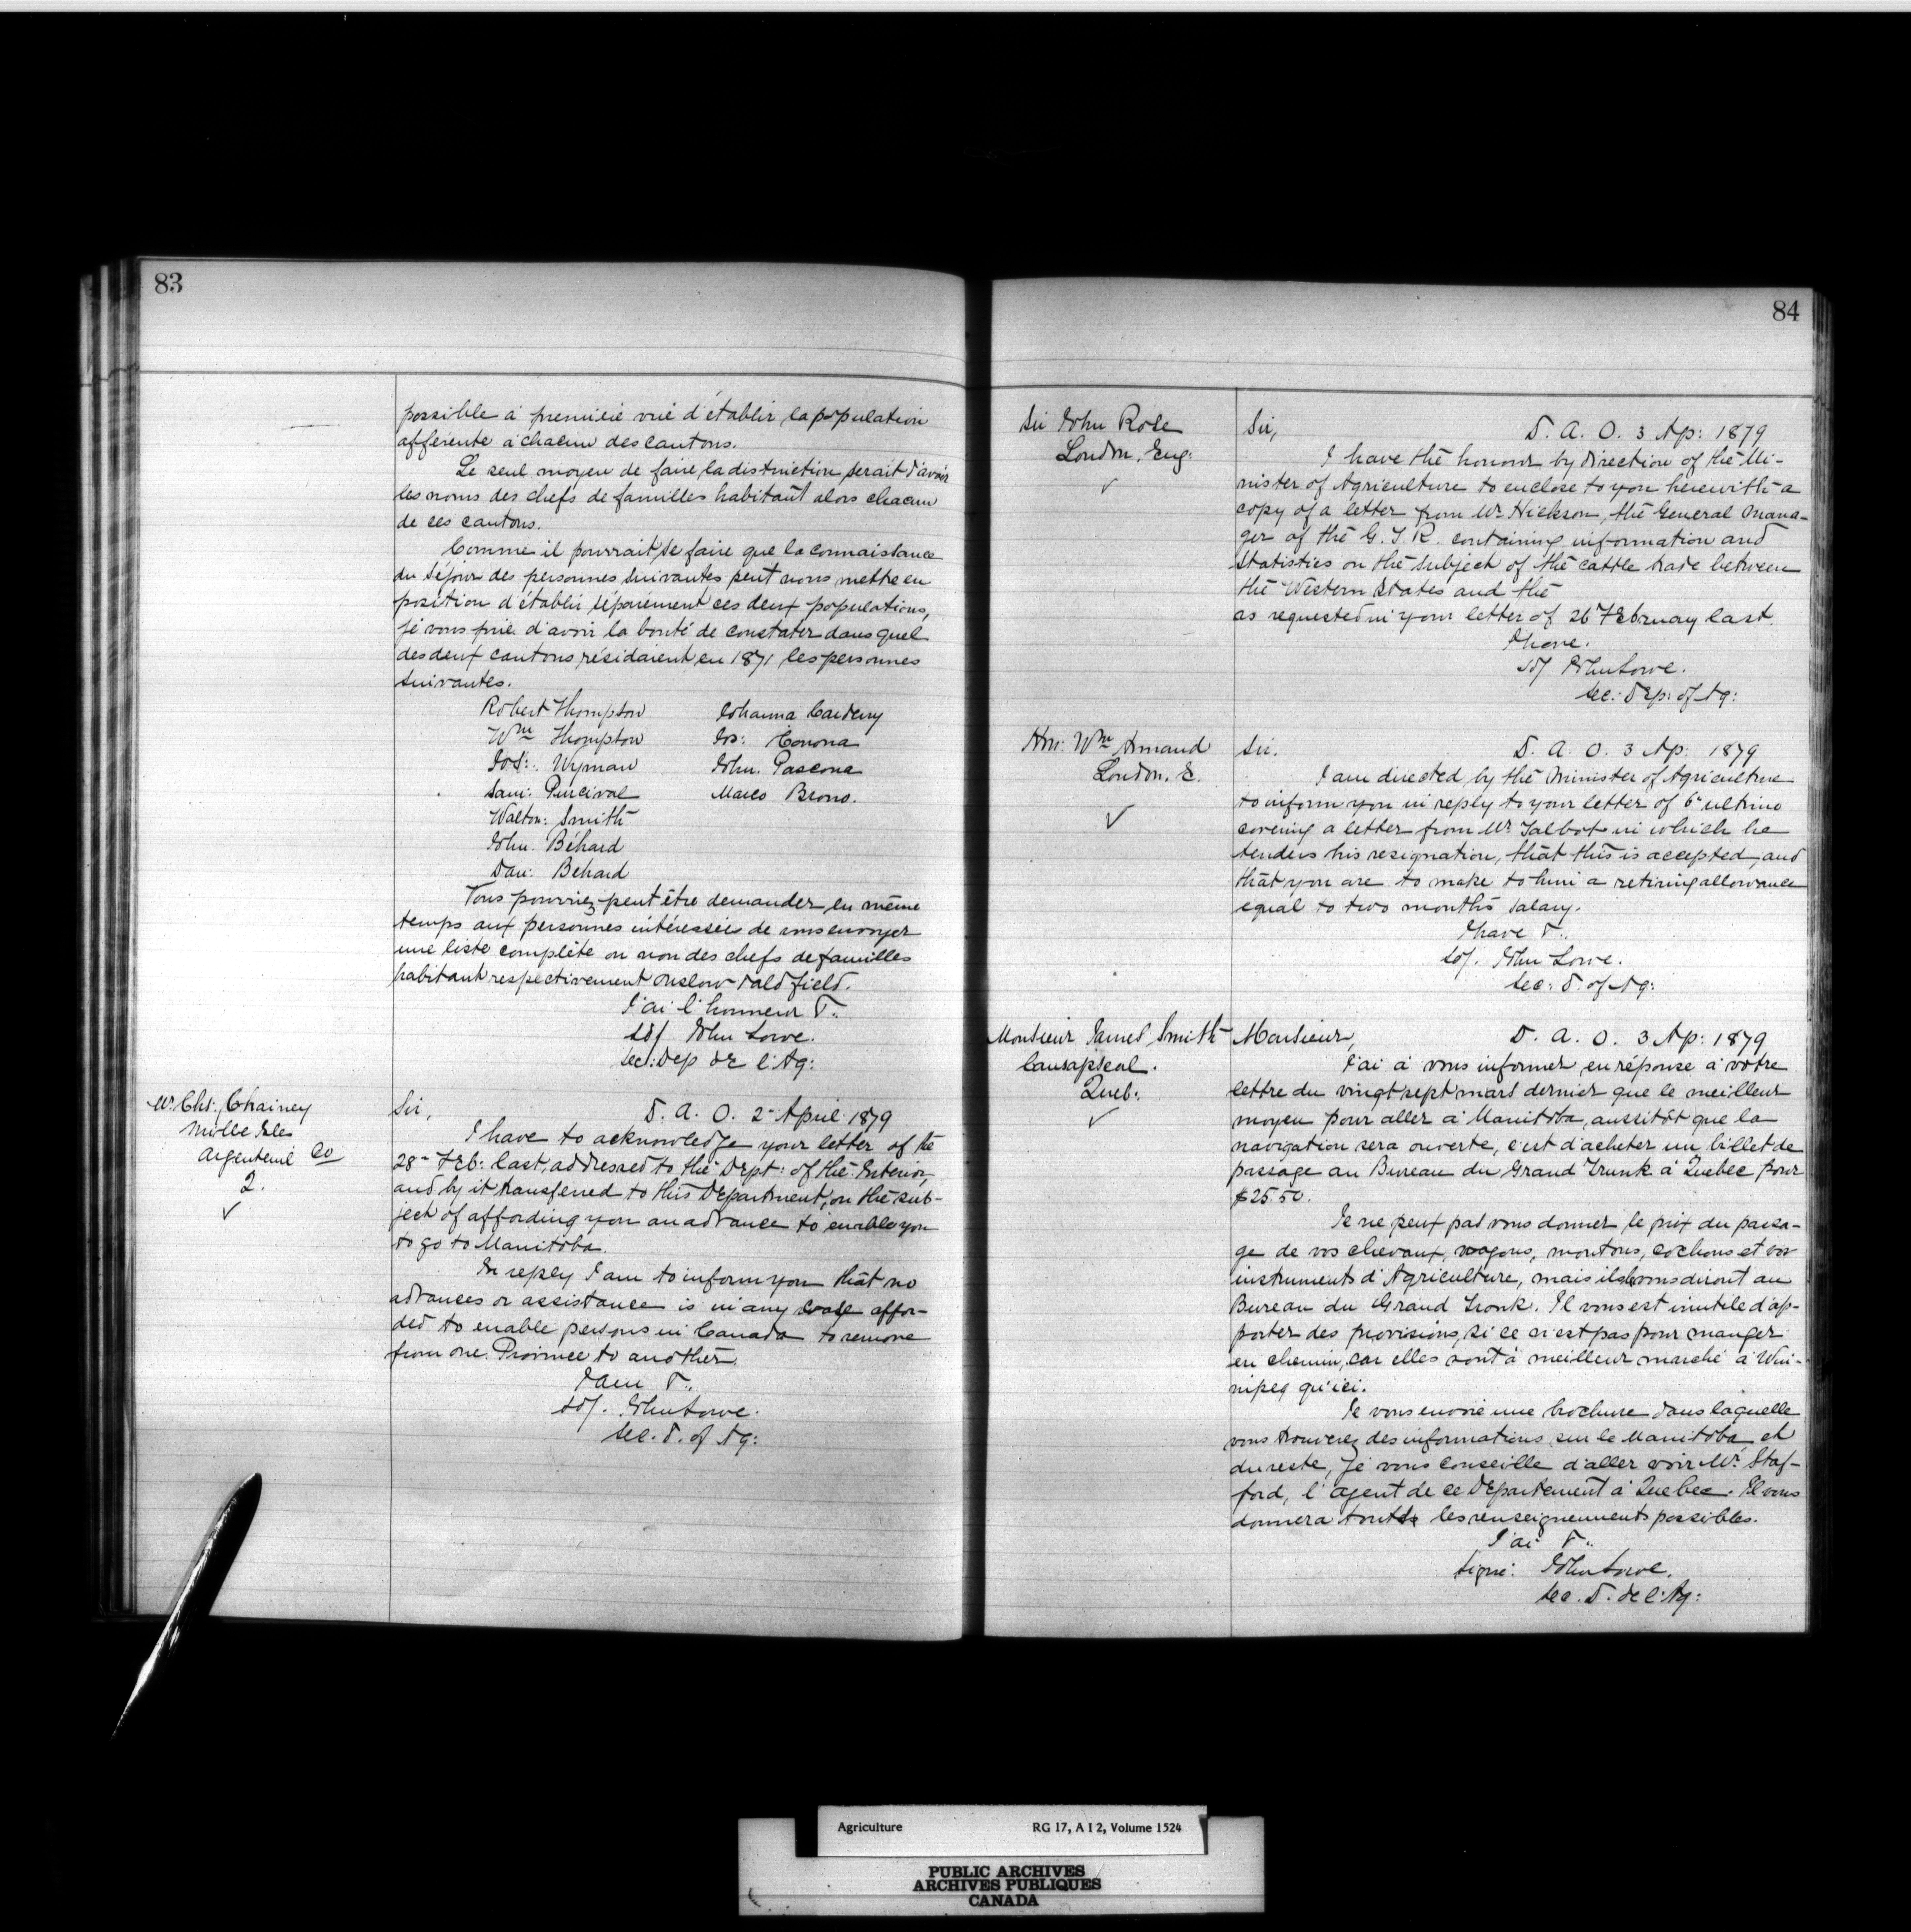 83
possible à première vue d'établir la population
afférente à chacun des cantons.
Le seul moyen de faire la distinction serait d'avoir
les noms des chefs de familles habitant alors chacun
de ces cantons.
Comme il pourrait se faire que la connaissance
du séjour des personnes suivantes peut nous mettre en
position d'établir séparément ces deux populations,
je vous prie d'avoir la bonté de constater dans quel
des deux cantons résidaient en 1871 les personnes
suivantes.
Robert Thompson Johanna
Wm Thompson Jos: Corona
Jos: Wyman John. Pascona
Sam: Percival Marco Brono.
Walton: Smith
John. Béhard
Dan: Behard
Vous pourriez peut être demander en même
temps aux personnes intéressées de vous envoyer
une liste complète ou non des chefs de familles
habitant respectivement Onslow & Aldfield.
J'ai l'honneur &.:
sd/ John Lowe.
Sec: Dep de l'Ag:
Mr. Chs: Chainey
Mille Isles
Argenteuil Co
2.
Sir,
D. A. O. 2d April 1879
I have to acknowledge your letter of the
28th Feb: last, addressed to the Dept: of the Interior,
and by it transferred to this Department, on the sub-
ject of affording you an advance to enable you
to go to Manitoba.
In reply I am to inform you that no
advances or assistance is in any case affor-
ded to enable persons in Canada to remove
from one Province to another.
I am &.:
sd/. John Lowe.
Sec. D. of Ag:
84
Sir John Rose
London, Eng:
Sir,
D. A. O. 3 Ap: 1879
I have the honour by direction of the Mi-
nister of Agriculture to enclose to you herewith a
copy of a letter from Mr Hickson, the General Mana-
ger of the G. T. R. containing information and
statistics on the subject of the cattle trade between
the Western States and the
as requested in your letter of 26 February last.
I have.
sd/ John Lowe.
Sec: Dep: of Ag:
Hon: Wm Annand
London. E.
Sir.
D. A. O. 3 Ap: 1879
I am directed by the Minister of Agriculture
to inform you in reply to your letter of 6th ultimo
covering a letter from Mr Talbot in which he
tenders his resignation, that this is accepted, and
that you are to make to him a retiring allowance
equal to two months salary.
I have &.:
sd/. John Lowe.
Sec: D. of Ag:
Monsieur James Smith
Causapscal.
Queb:
Monsieur,
D. A. O. 3 Ap: 1879
J'ai à vous informer en réponse à votre
lettre du vingt sept mars dernier que le meilleur
moyen pour aller à Manitoba, aussitôt que la
navigation sera ouverte, c'est d'acheter un billet de
passage au Bureau du Grand Trunk à Quebec pour
$25.50.
Je ne peux pas vous donner le prix du passa-
ge de vos chevaux, wagons, moutons, cochons et vos
instruments d'Agriculture, mais ils vous diront au
Bureau du Grand Tronk. Il vous est inutile d'ap-
porter des provisions, si ce n'est pas pour manger
en chemin, car elles sont à meilleur marché à Win-
nipeg qu'ici.
Je vous envoie une brochure dans laquelle
vous trouverez des informations sur le Manitoba et
du reste, je vous conseille d'aller voir Mr. Staf-
ford, l'agent de ce Département à Quebec. Il vous
donnera tout les renseignements possibles.
J'ai &.:
Signé: John Lowe.
Sec. D. de l'Ag:
Agriculture RG 17, A I 2, Volume 1524
PUBLIC ARCHIVES
ARCHIVES PUBLIQUES
CANADA